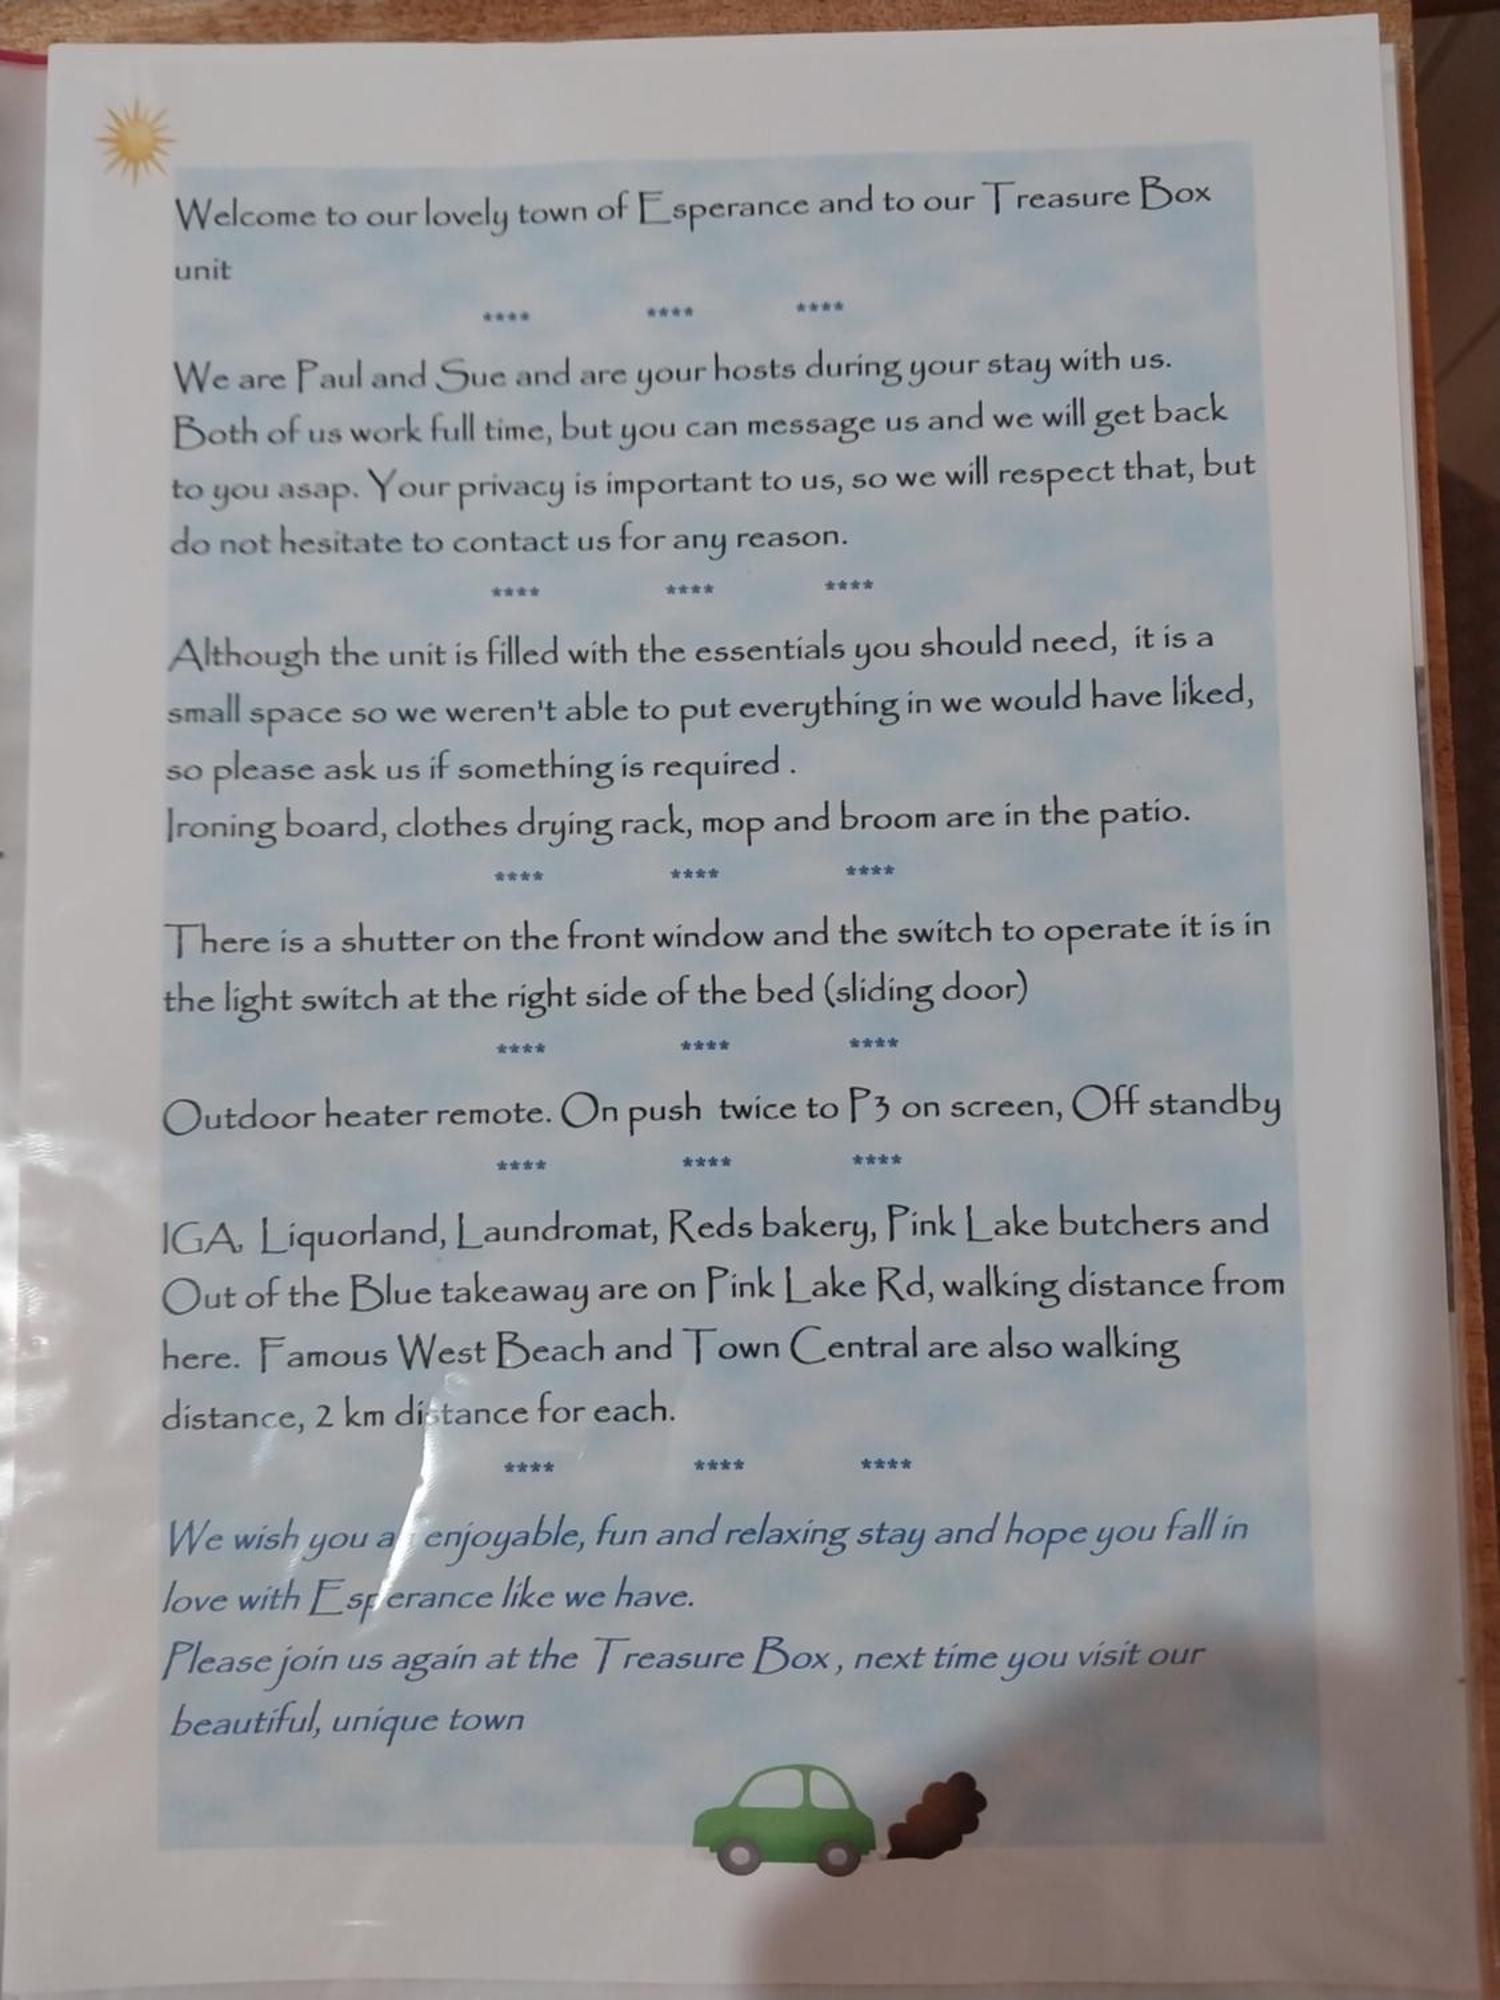 Welcome to our lovely town of Esperance and to our Treasure Box
unit
**** **** ****
We are Paul and Sue and are your hosts during your stay with us.
Both of us work full time, but you can message us and we will get back
to you asap. Your privacy is important to us, so we will respect that, but
do not hesitate to contact us for any reason.
**** **** ****
Although the unit is filled with the essentials you should need, it is a
small space so we weren't able to put everything in we would have liked,
so please ask us if something is required .
Ironing board, clothes drying rack, mop and broom are in the patio.
**** **** ****
There is a shutter on the front window and the switch to operate it is in
the light switch at the right side of the bed (sliding door)
**** **** ****
Outdoor heater remote. On push twice to P3 on screen, Off standby
**** **** ****
IGA, Liquorland, Laundromat, Reds bakery, Pink Lake butchers and
Out of the Blue takeaway are on Pink Lake Rd, walking distance from
here. Famous West Beach and Town Central are also walking
distance, 2 km distance for each.
**** **** ****
We wish you an enjoyable, fun and relaxing stay and hope you fall in
love with Esperance like we have.
Please join us again at the Treasure Box, next time you visit our
beautiful, unique town